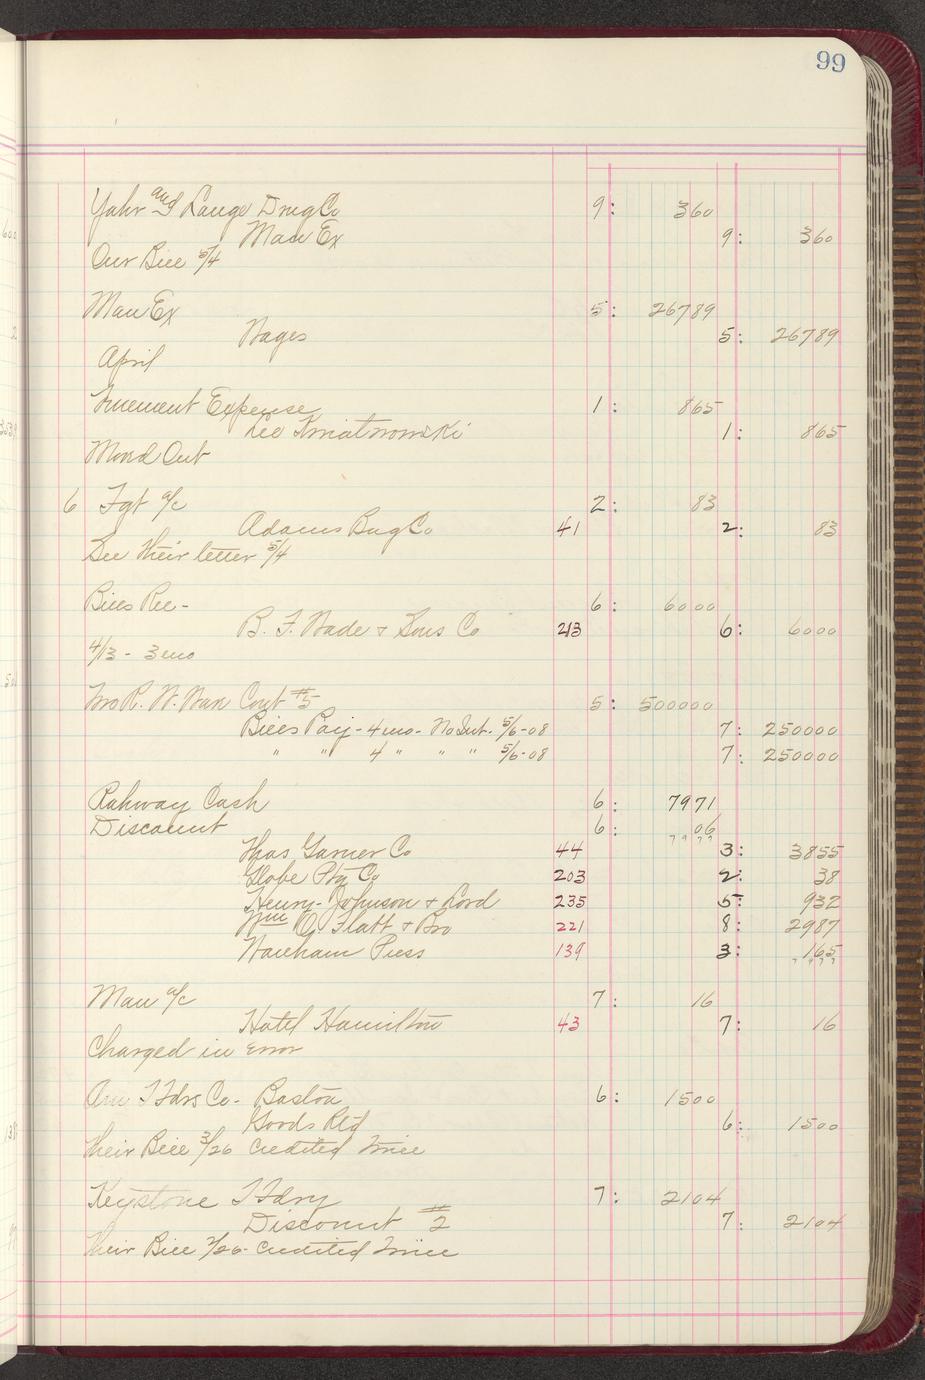 99
Yahr and Lange Drug Co 9: 360
Man Ex 9: 360
Our Bill 5/4
Man Ex 5: 26789
Wages 5: 26789
April
Expense 1: 865
Leo 1: 865
Out
6 Fgt a/c 2: 83
Adams Bag Co 41 2: 83
See their letter 5/4
Bills Rec- 6: 6000
B. F. Wade & Sons Co 213 6: 6000
4/13 - 3 mo
R. W. Cont #5 5: 500000
Bills Pay - 4 mo - No Int. 5/6-08 7: 250000
" " 4 " " " 5/6-08 7: 250000
Rahway Cash 6: 7971
Discount 6: 06
7977
Thos Garner Co 44 3: 3855
Globe Ptg Co 203 2: 38
Henry-Johnson & Lord 235 5: 932
Wm Q. Flatt & Bro 221 8: 2987
Wareham Press 139 3: 165
7977
Man a/c 7: 16
Hotel Hamilton 43 7: 16
Charged in Error
Am T Fdrs Co - Boston 6: 1500
Goods Rtd 6: 1500
Their Bill 3/26 Credited Twice
Keystone T Fdry 7: 2104
Discount #2 7: 2104
Their Bill 2/26 - Credited Twice